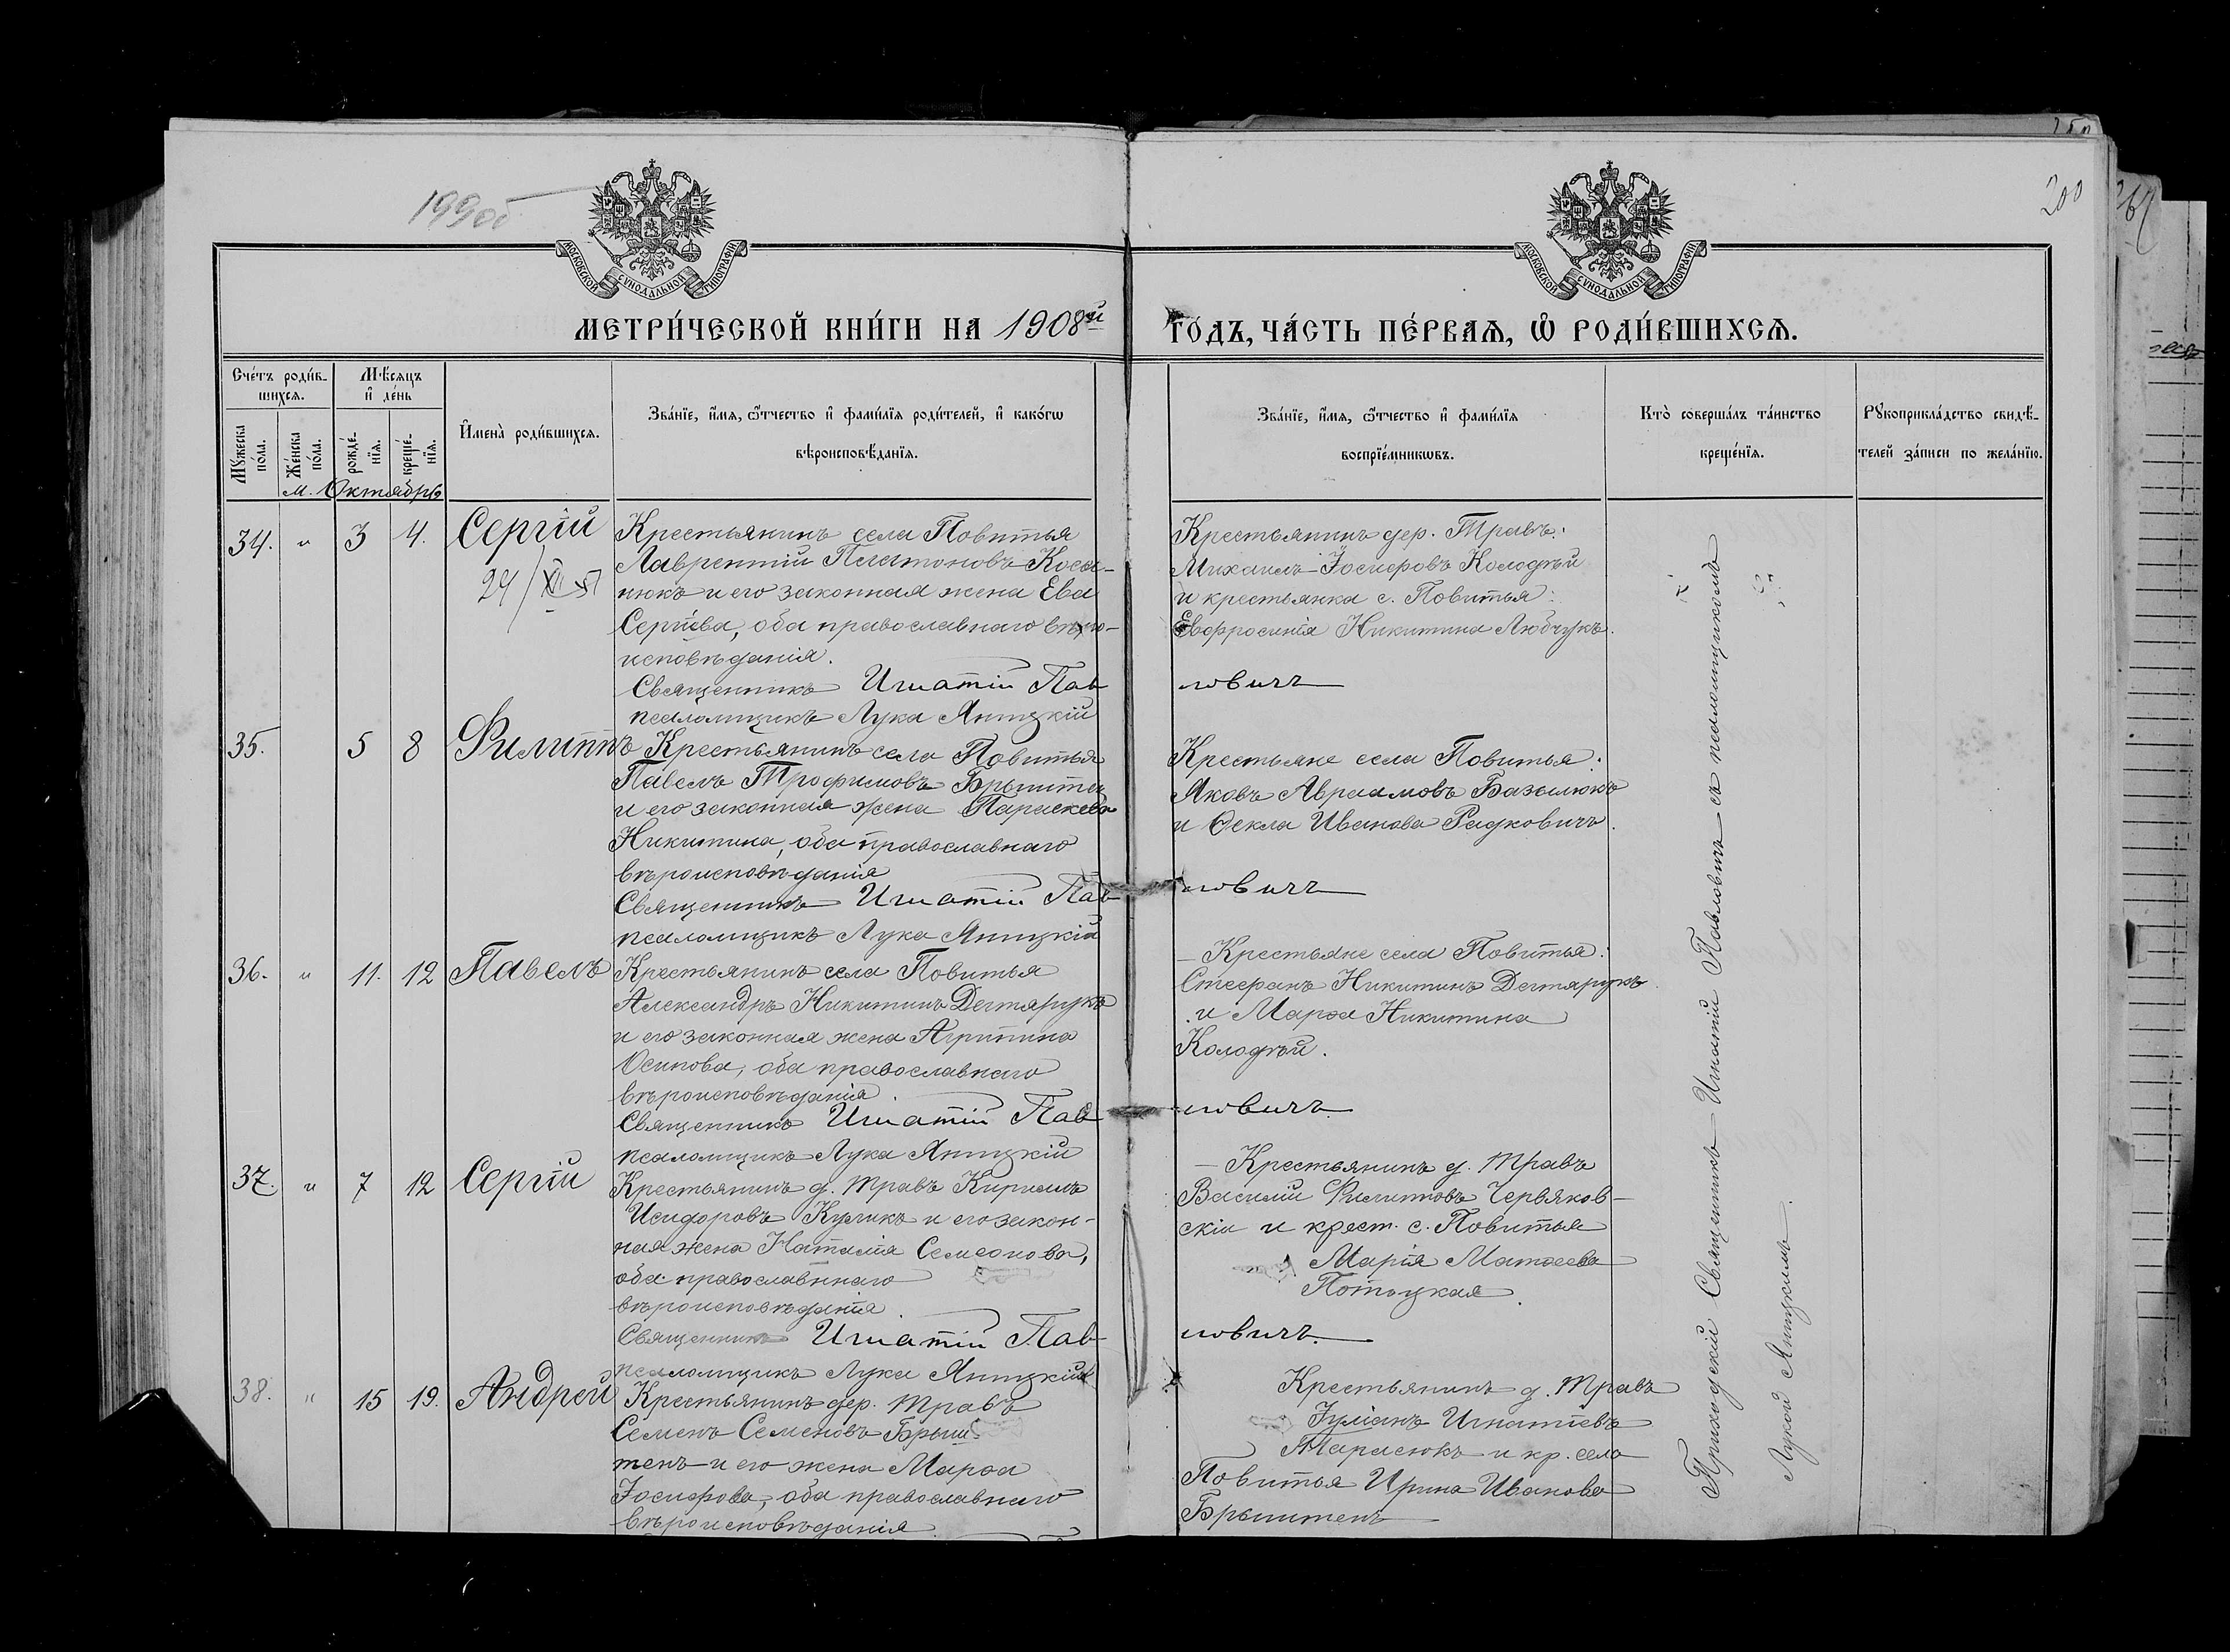 199 об
200
МОСКОВСКОЙ СѴНОДАЛЬНОЙ ТИПОГРАФІИ
МОСКОВСКОЙ СѴНОДАЛЬНОЙ ТИПОГРАФІИ
МЕТРИ́ЧЕСКОЙ КНИ́ГИ НА 1908й ГО́ДЪ, ЧА́СТЬ ПЕ́РВАѦ, Ѡ҆ РОДИ́ВШИХСѦ.
Сче́тъ роди́в-
шихсѧ.
Мѣ́сѧцъ
и҆ де́нь
Мꙋ́жеска
по́ла.
Же́нска
по́ла.
рожде́-
нїѧ.
креще́-
нїѧ.
И҆мена̀ роди́вшихсѧ.
Зва́нїе, и҆́мѧ, ѻ҆́тчество и҆ фами́лїѧ роди́телей, и҆ како́гѡ
вѣроисповѣ́данїѧ.
Зва́нїе, и҆́мѧ, ѻ҆́тчество и҆ фами́лїѧ
воспрїе́мникѡвъ.
Кто̀ соверша́лъ та́инство
креще́нїѧ.
Рꙋкоприкла́дство свидѣ́-
телей за́писи по жела́нїю.
м. Октябрь
34. " 3 4. Сергій
Крестьянинъ села Повитья
Лаврентій Платоновъ Коса-
нюкъ и его законная жена Ева
Сергіева, оба православнаго вѣро-
исповѣданія.
Священникъ Игнатій Павловичъ
псаломщикъ Лука Яницкій
Крестьянинъ дер. Травъ:
Михаилъ Іосифовъ Колодѣй
и крестьянка с. Повитья:
Евфросинія Никитина Любчукъ.
35. 5 8 Филиппъ
Крестьянинъ села Повитья
Павелъ Трофимовъ Брыштен
и его законная жена Параскева
Никитина, оба православнаго
вѣроисповѣданія
Священникъ Игнатій Павловичъ
псаломщикъ Лука Яницкій
Крестьяне села Повитья:
Яковъ Авраамовъ Базылюкъ
и Ѳекла Иванова Радковичъ.
36. " 11. 12 Павелъ
Крестьянинъ села Повитья
Александръ Никитинъ Дегтярукъ
и его законная жена Агрипина
Осипова, оба православнаго
вѣроисповѣданія
Священникъ Игнатій Павловичъ
псаломщикъ Лука Яницкій
— Крестьяне села Повитья:
Стефанъ Никитинъ Дегтярукъ
и Марѳа Никитина
Колодѣй.
37. " 7 12 Сергій
Крестьянинъ д. Травъ Кириллъ
Исидоровъ Куликъ и его закон-
ная жена Наталія Семеонова,
оба православнаго
вѣроисповѣданія.
Священникъ Игнатій Павловичъ.
псаломщикъ Лука Яницкій
— Крестьянинъ д. Травъ
Василій Филипповъ Червяков-
скій и крест. с. Повитья
Марія Матѳеева
Потоцкая.
38. " 15 19. Андрей
Крестьянинъ дер. Травъ
Семенъ Семеновъ Брыш-
тенъ и его жена Марѳа
Іосифова, оба православнаго
вѣроисповѣданія.
Крестьянинъ д. Травъ
Іуліанъ Игнатіевъ
Тарасюкъ и кр. села
Повитья Ирина Иванова
Брыштенъ
Приходскій Священникъ Игнатій Павловичъ съ псаломщикомъ
Лукой Яницкимъ.